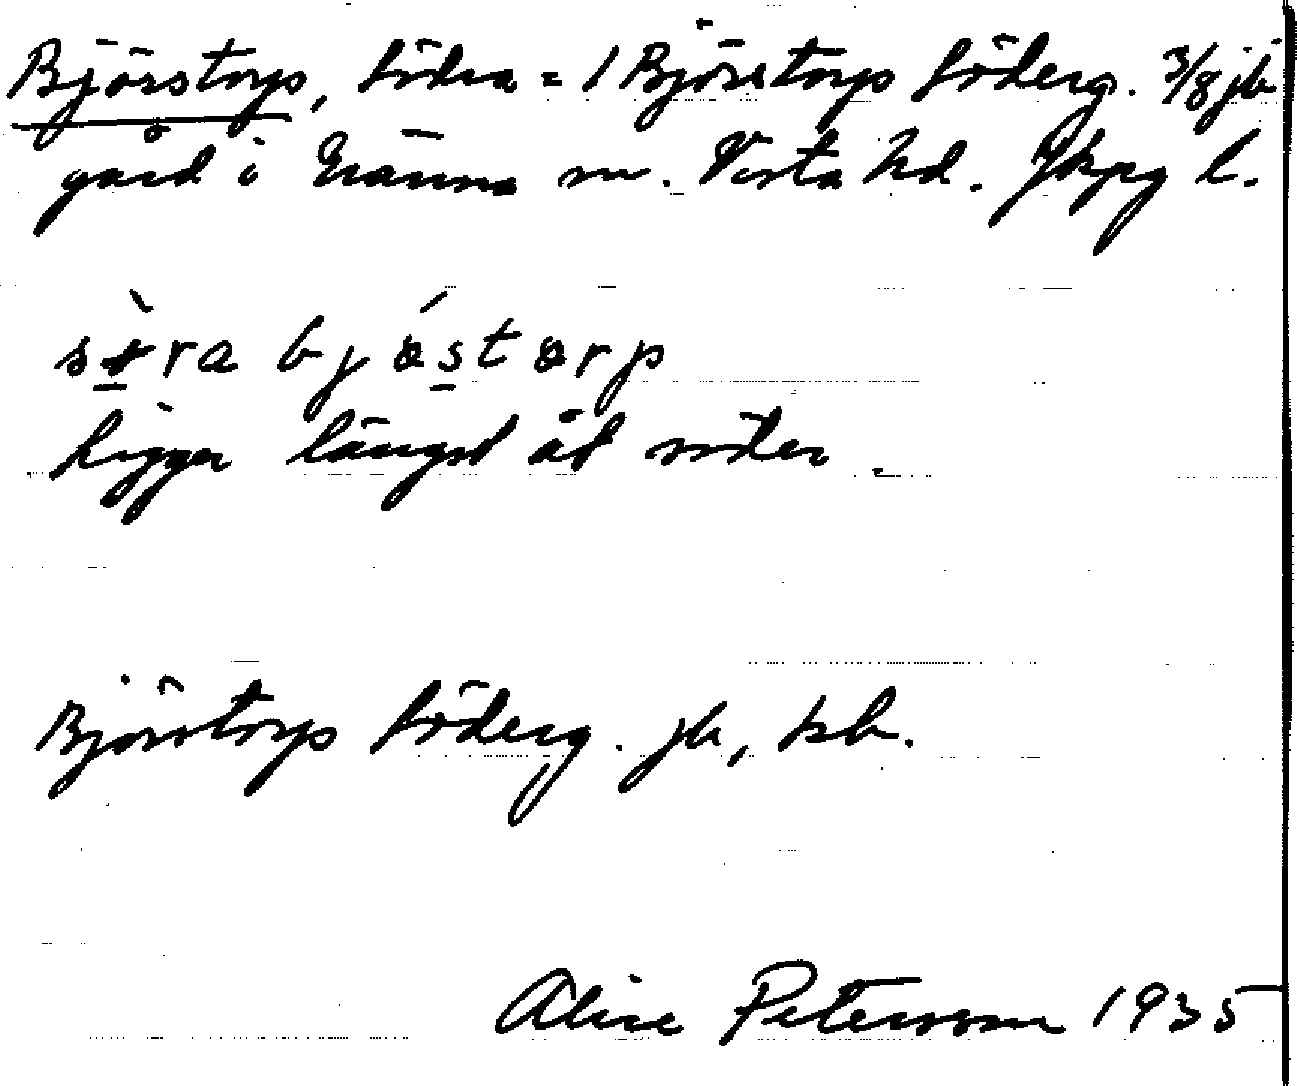 Björstorp, Södra = 1 Björstorp Söderg. 3/8 jb
gård i Gränna sn. Vista hd. Jkpg l.
sø̀ra bjǿstørp
ligger längst åt söder.
Björstorp Söderg. jb, kb.
Alice Petersson 1935